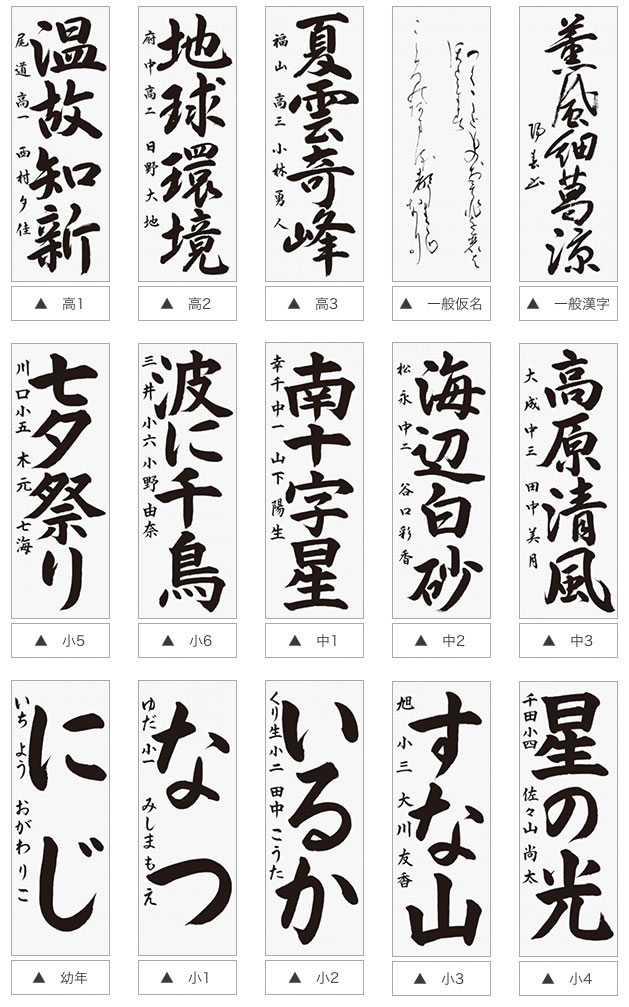 温故知新
尾道 高一 西村夕佳
地球環境
府中高二 日野大地
夏雲奇峰
福山 高三 小林勇人
薫風細葛涼
▲ 高1
▲ 高2
▲ 高3
▲ 一般仮名
▲ 一般漢字
七夕祭り
川口小五 木元 七海
波に千鳥
三井 小六 小野 由奈
南十字星
幸千中一 山下 陽生
海辺白砂
松永 中二 谷口彩香
高原清風
大成中三 田中美月
▲ 小5
▲ 小6
▲ 中1
▲ 中2
▲ 中3
にじ
いち よう おがわ りこ
なつ
ゆだ 小一 みしま もえ
いるか
くり生小二 田中 こうた
すな山
旭 小三 大川 友香
星の光
千田小四 佐々山 尚太
▲ 幼年
▲ 小1
▲ 小2
▲ 小3
▲ 小4